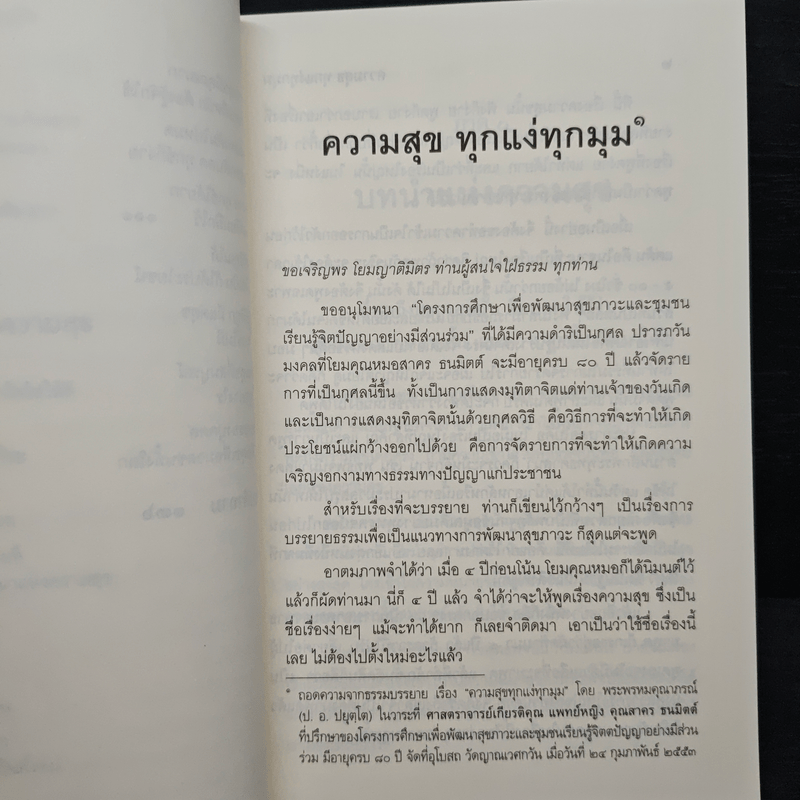 ความสุข ทุกแง่ทุกมุม๑
ขอเจริญพร โยมญาติมิตร ท่านผู้สนใจใฝ่ธรรม ทุกท่าน
ขออนุโมทนา “โครงการศึกษาเพื่อพัฒนาสุขภาวะและชุมชน
เรียนรู้จิตปัญญาอย่างมีส่วนร่วม” ที่ได้มีความดำริเป็นกุศล ปรารภวัน
มงคลที่โยมคุณหมอสาคร ธนมิตต์ จะมีอายุครบ ๘๐ ปี แล้วจัดราย
การที่เป็นกุศลนี้ขึ้น ทั้งเป็นการแสดงมุทิตาจิตแด่ท่านเจ้าของวันเกิด
และเป็นการแสดงมุทิตาจิตนั้นด้วยกุศลวิธี คือวิธีการที่จะทำให้เกิด
ประโยชน์แผ่กว้างออกไปด้วย คือการจัดรายการที่จะทำให้เกิดความ
เจริญงอกงามทางธรรมทางปัญญาแก่ประชาชน
สำหรับเรื่องที่จะบรรยาย ท่านก็เขียนไว้กว้างๆ เป็นเรื่องการ
บรรยายธรรมเพื่อเป็นแนวทางการพัฒนาสุขภาวะ ก็สุดแต่จะพูด
อาตมภาพจำได้ว่า เมื่อ ๔ ปีก่อนโน้น โยมคุณหมอก็ได้นิมนต์ไว้
แล้วก็ผัดท่านมา นี่ก็ ๔ ปี แล้ว จำได้ว่าจะให้พูดเรื่องความสุข ซึ่งเป็น
ชื่อเรื่องง่ายๆ แม้จะทำได้ยาก ก็เลยจำติดมา เอาเป็นว่าใช้ชื่อเรื่องนี้
เลย ไม่ต้องไปตั้งใหม่อะไรแล้ว
๑ ถอดความจากธรรมบรรยาย เรื่อง “ความสุขทุกแง่ทุกมุม” โดย พระพรหมคุณาภรณ์
(ป. อ. ปยุตฺโต) ในวาระที่ ศาสตราจารย์เกียรติคุณ แพทย์หญิง คุณสาคร ธนมิตต์
ที่ปรึกษาของโครงการศึกษาเพื่อพัฒนาสุขภาวะและชุมชนเรียนรู้จิตตปัญญาอย่างมีส่วน
ร่วม มีอายุครบ ๘๐ ปี จัดที่อุโบสถ วัดญาณเวศกวัน เมื่อวันที่ ๒๔ กุมภาพันธ์ ๒๕๕๓